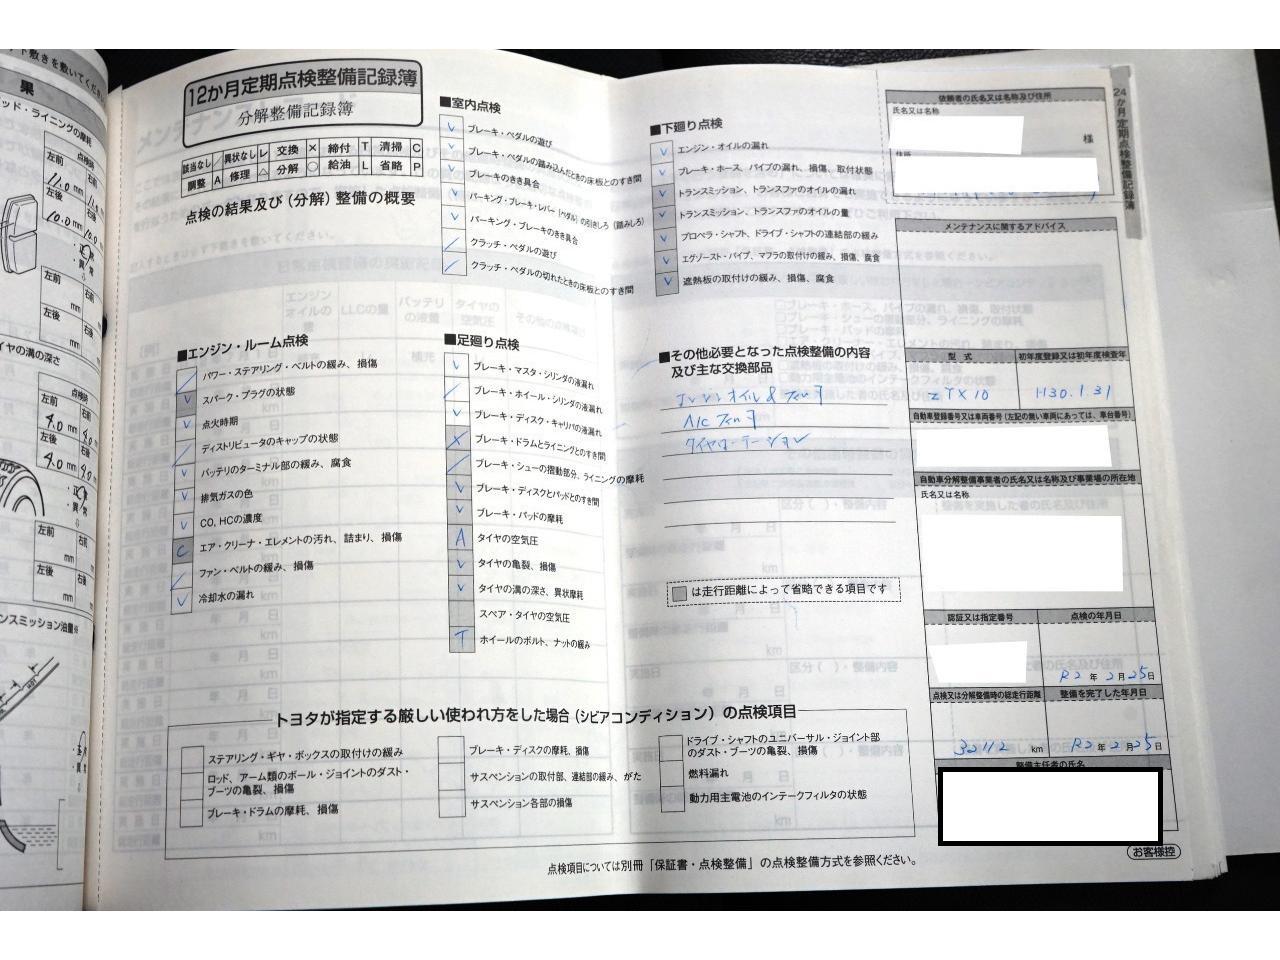 下敷きを敷いてください。
果
ッド・ライニングの摩耗
点検時
左前
右前
11.0
mm
左後
右後
10.0
mm
左前
右前
mm
左後
右後
mm
イヤの溝の深さ
点検時
左前
右前
4.0 mm
左後
右後
4.0 mm
左前
右前
mm
左後
右後
mm
ンスミッション油量※
12か月定期点検整備記録簿
分解整備記録簿
該当なし / 異状なし レ 交換 × 締付 T 清掃 C
調整 A 修理 △ 分解 ○ 給油 L 省略 P
点検の結果及び(分解)整備の概要
■エンジン・ルーム点検
/ パワー・ステアリング・ベルトの緩み、損傷
レ スパーク・プラグの状態
レ 点火時期
/ ディストリビュータのキャップの状態
レ バッテリのターミナル部の緩み、腐食
レ 排気ガスの色
レ CO, HCの濃度
C エア・クリーナ・エレメントの汚れ、詰まり、損傷
/ ファン・ベルトの緩み、損傷
レ 冷却水の漏れ
■室内点検
レ ブレーキ・ペダルの遊び
レ ブレーキ・ペダルの踏み込んだときの床板とのすき間
レ ブレーキのきき具合
レ パーキング・ブレーキ・レバー(ペダル)の引きしろ(踏みしろ)
レ パーキング・ブレーキのきき具合
/ クラッチ・ペダルの遊び
/ クラッチ・ペダルの切れたときの床板とのすき間
■足廻り点検
レ ブレーキ・マスタ・シリンダの液漏れ
/ ブレーキ・ホイール・シリンダの液漏れ
レ ブレーキ・ディスク・キャリパの液漏れ
ブレーキ・ドラムとライニングとのすき間
/ ブレーキ・シューの摺動部分、ライニングの摩耗
レ ブレーキ・ディスクとパッドとのすき間
レ ブレーキ・パッドの摩耗
A タイヤの空気圧
レ タイヤの亀裂、損傷
レ タイヤの溝の深さ、異状摩耗
スペア・タイヤの空気圧
T ホイールのボルト、ナットの緩み
■下廻り点検
レ エンジン・オイルの漏れ
レ ブレーキ・ホース、パイプの漏れ、損傷、取付状態
レ トランスミッション、トランスファのオイルの漏れ
レ トランスミッション、トランスファのオイルの量
レ プロペラ・シャフト、ドライブ・シャフトの連結部の緩み
レ エグゾースト・パイプ、マフラの取付けの緩み、損傷、腐食
レ 遮熱板の取付けの緩み、損傷、腐食
■その他必要となった点検整備の内容
及び主な交換部品
エンジンオイル&フィルタ
A/Cフィルタ
タイヤローテーション
は走行距離によって省略できる項目です
依頼者の氏名又は名称及び住所
氏名又は名称
様
住所
メンテナンスに関するアドバイス
型 式
初年度登録又は初年度検査年
ZYX10
H30.1.31
自動車登録番号又は車両番号(左記の無い車両にあっては、車台番号)
自動車分解整備事業者の氏名又は名称及び事業場の所在地
氏名又は名称
認証又は指定番号
点検の年月日
R2 年 2 月 25 日
点検又は分解整備時の総走行距離
整備を完了した年月日
32112 km
R2 年 2 月 25 日
整備主任者の氏名
24か月定期点検整備記録簿
トヨタが指定する厳しい使われ方をした場合(シビアコンディション)の点検項目
ステアリング・ギヤ・ボックスの取付けの緩み
ロッド、アーム類のボール・ジョイントのダスト・
ブーツの亀裂、損傷
ブレーキ・ドラムの摩耗、損傷
ブレーキ・ディスクの摩耗、損傷
サスペンションの取付部、連結部の緩み、がた
サスペンション各部の損傷
ドライブ・シャフトのユニバーサル・ジョイント部
のダスト・ブーツの亀裂、損傷
燃料漏れ
動力用主電池のインテークフィルタの状態
点検項目については別冊「保証書・点検整備」の点検整備方式を参照ください。
お客様控